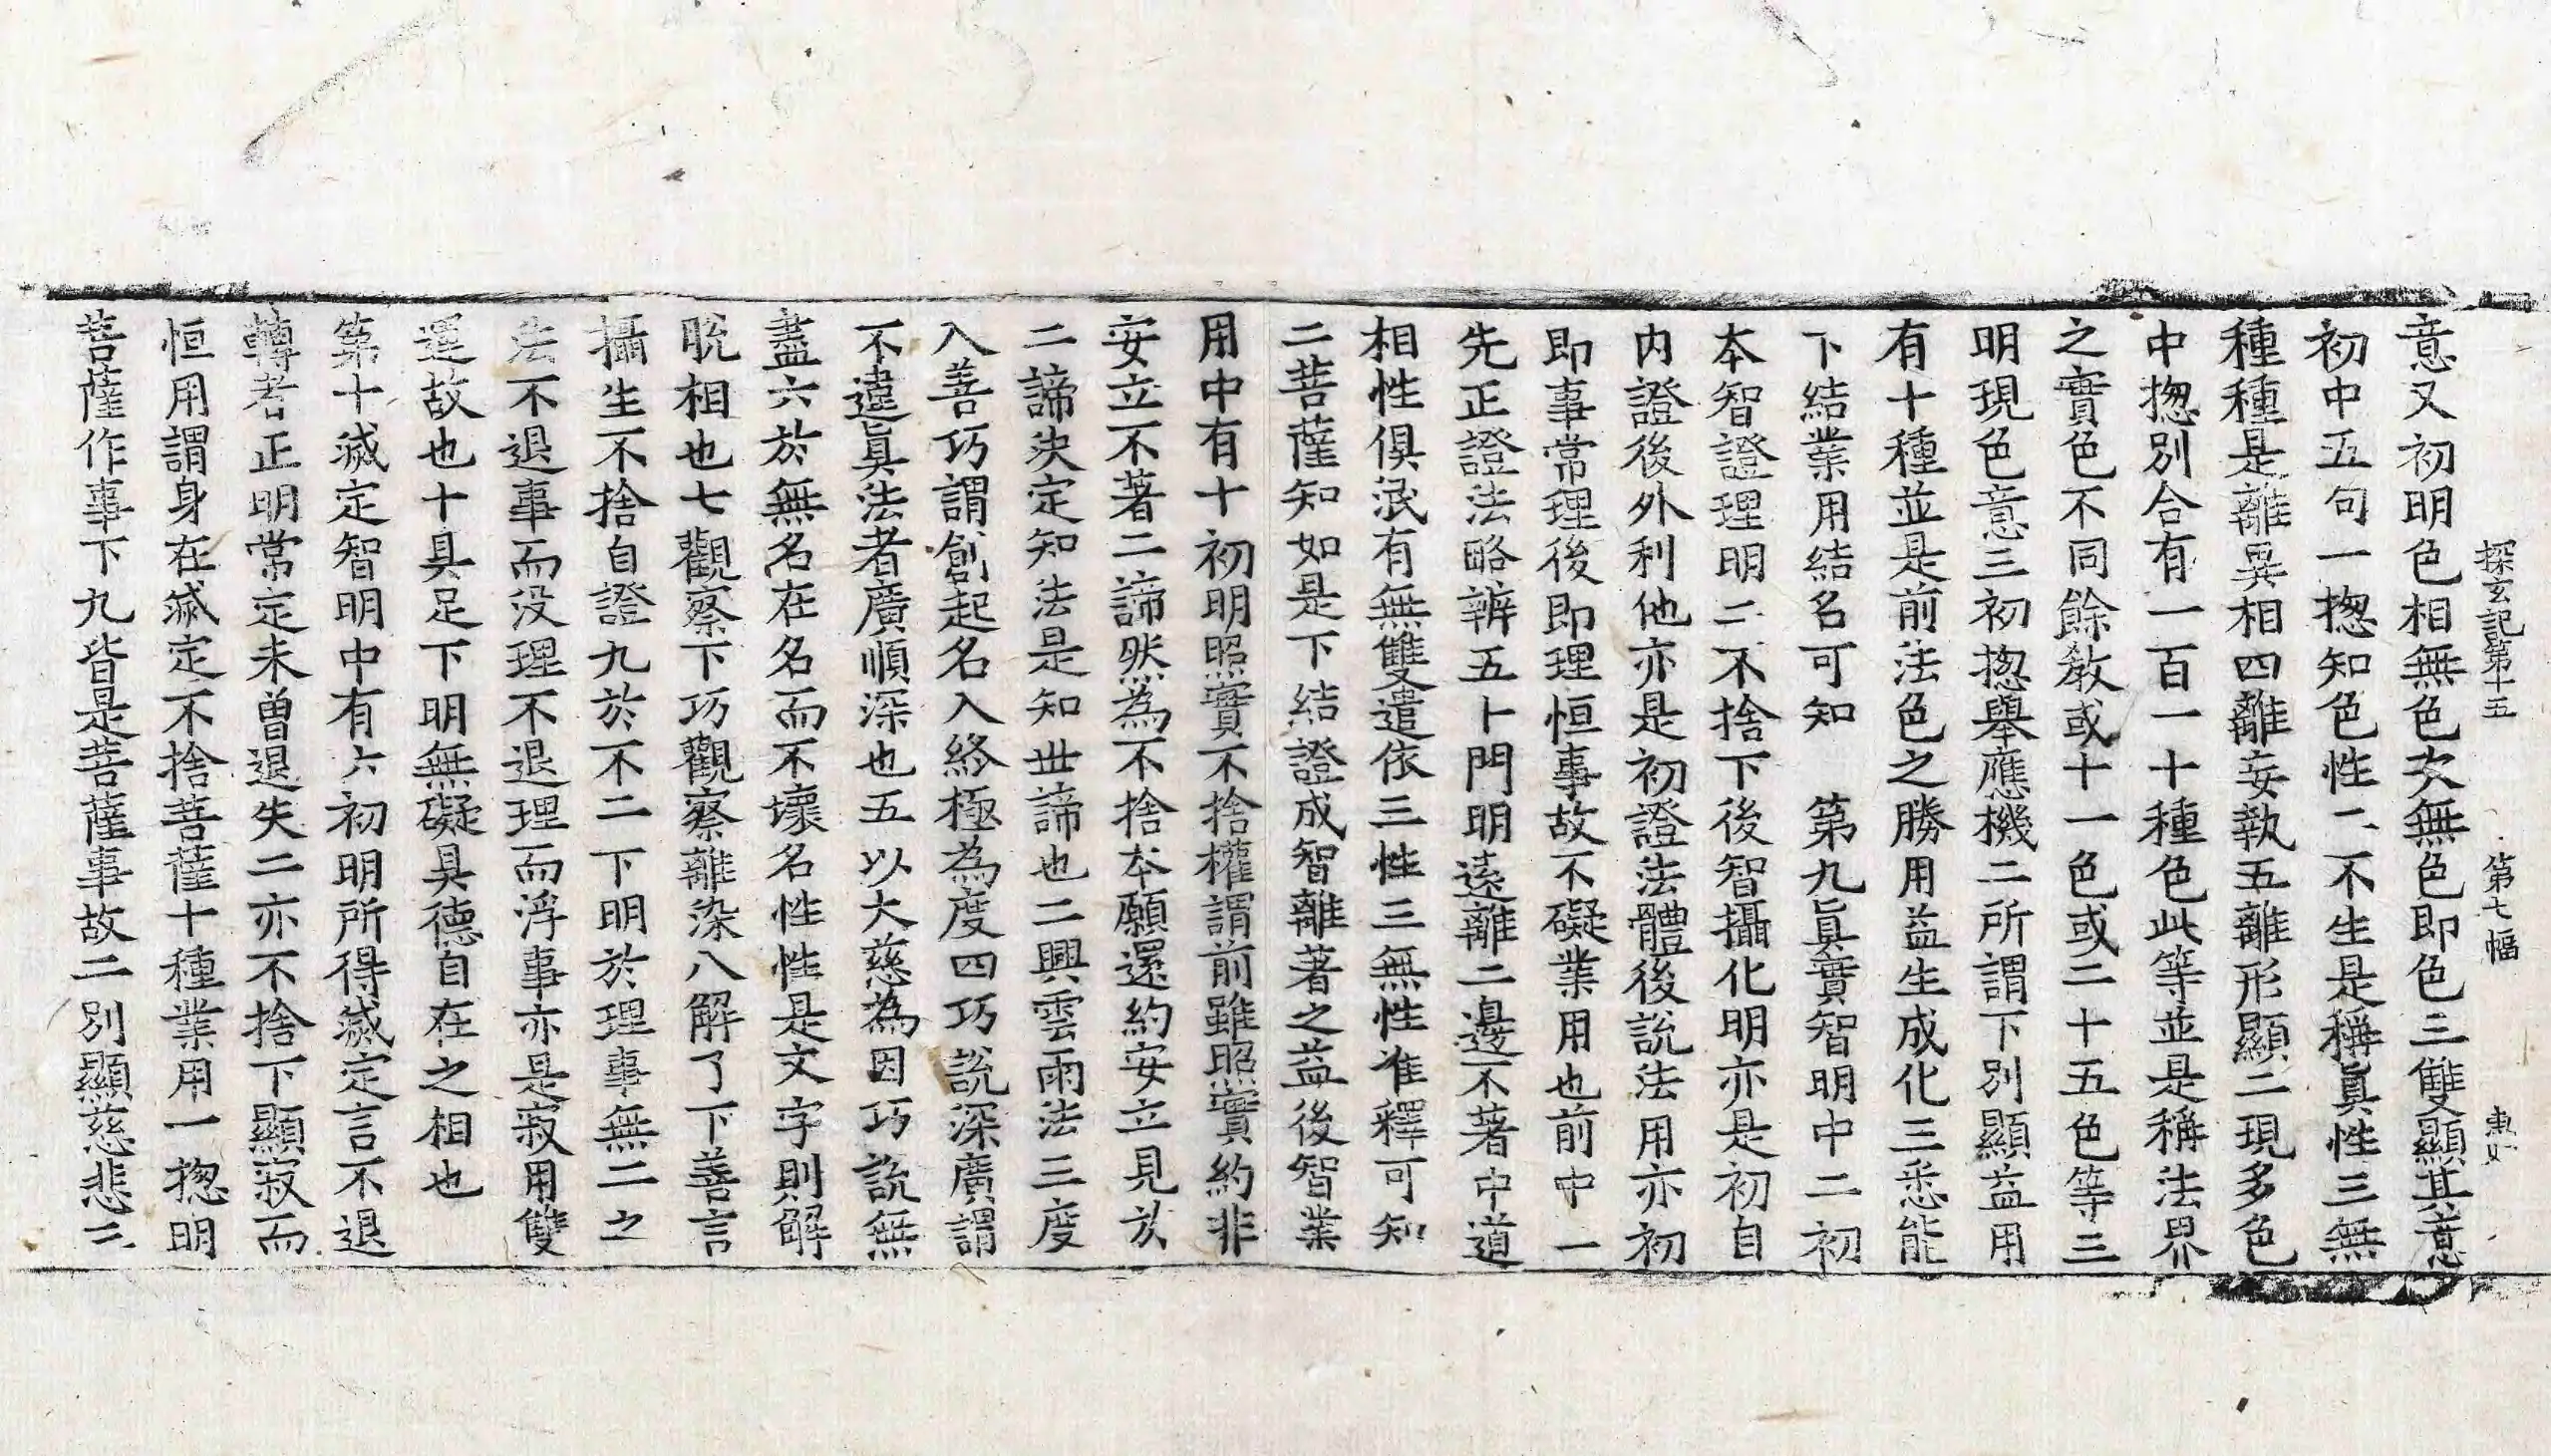 探玄記第十五 第七幅
意又初明色相無色次無色即色三雙顯其意
初中五句一揔知色性二不生是稱眞性三無
種種是離異相四離妄執五離形顯二現多色
中揔別合有一百一十種色此等並是稱法界
之實色不同餘教或十一色或二十五色等三
明現色意三初揔舉應機二所謂下別顯益用
有十種並是前法色之勝用益生成化三悉能
下結業用結名可知　第九眞實智明中二初
本智證理明二不捨下後智攝化明亦是初自
内證後外利他亦是初證法體後說法用亦初
即事常理後即理恒事故不礙業用也前中一
先正證法略辨五卜門明遠離二邊不著中道
相性俱泯有無雙遣依三性三無性准釋可知
二菩薩知如是下結證成智離著之益後智業
用中有十初明照實不捨權謂前雖照實約非
安立不著二諦然為不捨本願還約安立見於
二諦決定知法是知世諦也二興雲雨法三度
入善巧謂創起名入終極為度四巧說深廣謂
不違眞法者廣順深也五以大慈為因巧說無
盡六於無名在名而不壞名性性是文字則解
脫相也七觀察下巧觀察離染八解了下善言
攝生不捨自證九於不二下明於理事無二之
法不退事而没理不退理而浮事亦是寂用雙
運故也十具足下明無礙具德自在之相也
第十滅定智明中有六初明所得滅定言不退
轉者正明常定未曾退失二亦不捨下顯寂而
恒用謂身在滅定不捨菩薩十種業用一揔明
菩薩作事下九皆是菩薩事故二別顯慈悲三